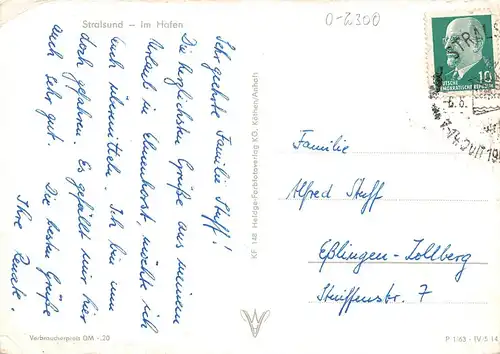 Stralsund – Im Hafen
0-2300
Sehr geehrte Familie Steff!
Die herzlichsten Grüße aus meinem
Urlaub in Elmenhorst, möchte ich
Euch übermitteln. Ich bin nun
doch gefahren. Es gefällt mir hier
auch sehr gut. Die besten Grüße
Ihre
KF 148 Heldge-Farbfotoverlag KG, Köthen/Anhalt
Verbraucherpreis DM -.20
10
DEUTSCHE
DEMOKRATISCHE REPUBLIK
STRAL
-6.8.
Familie
Alfred Steff
Eßlingen-Zollberg
Steiffenstr. 7
P 1/63 - IV-5 14